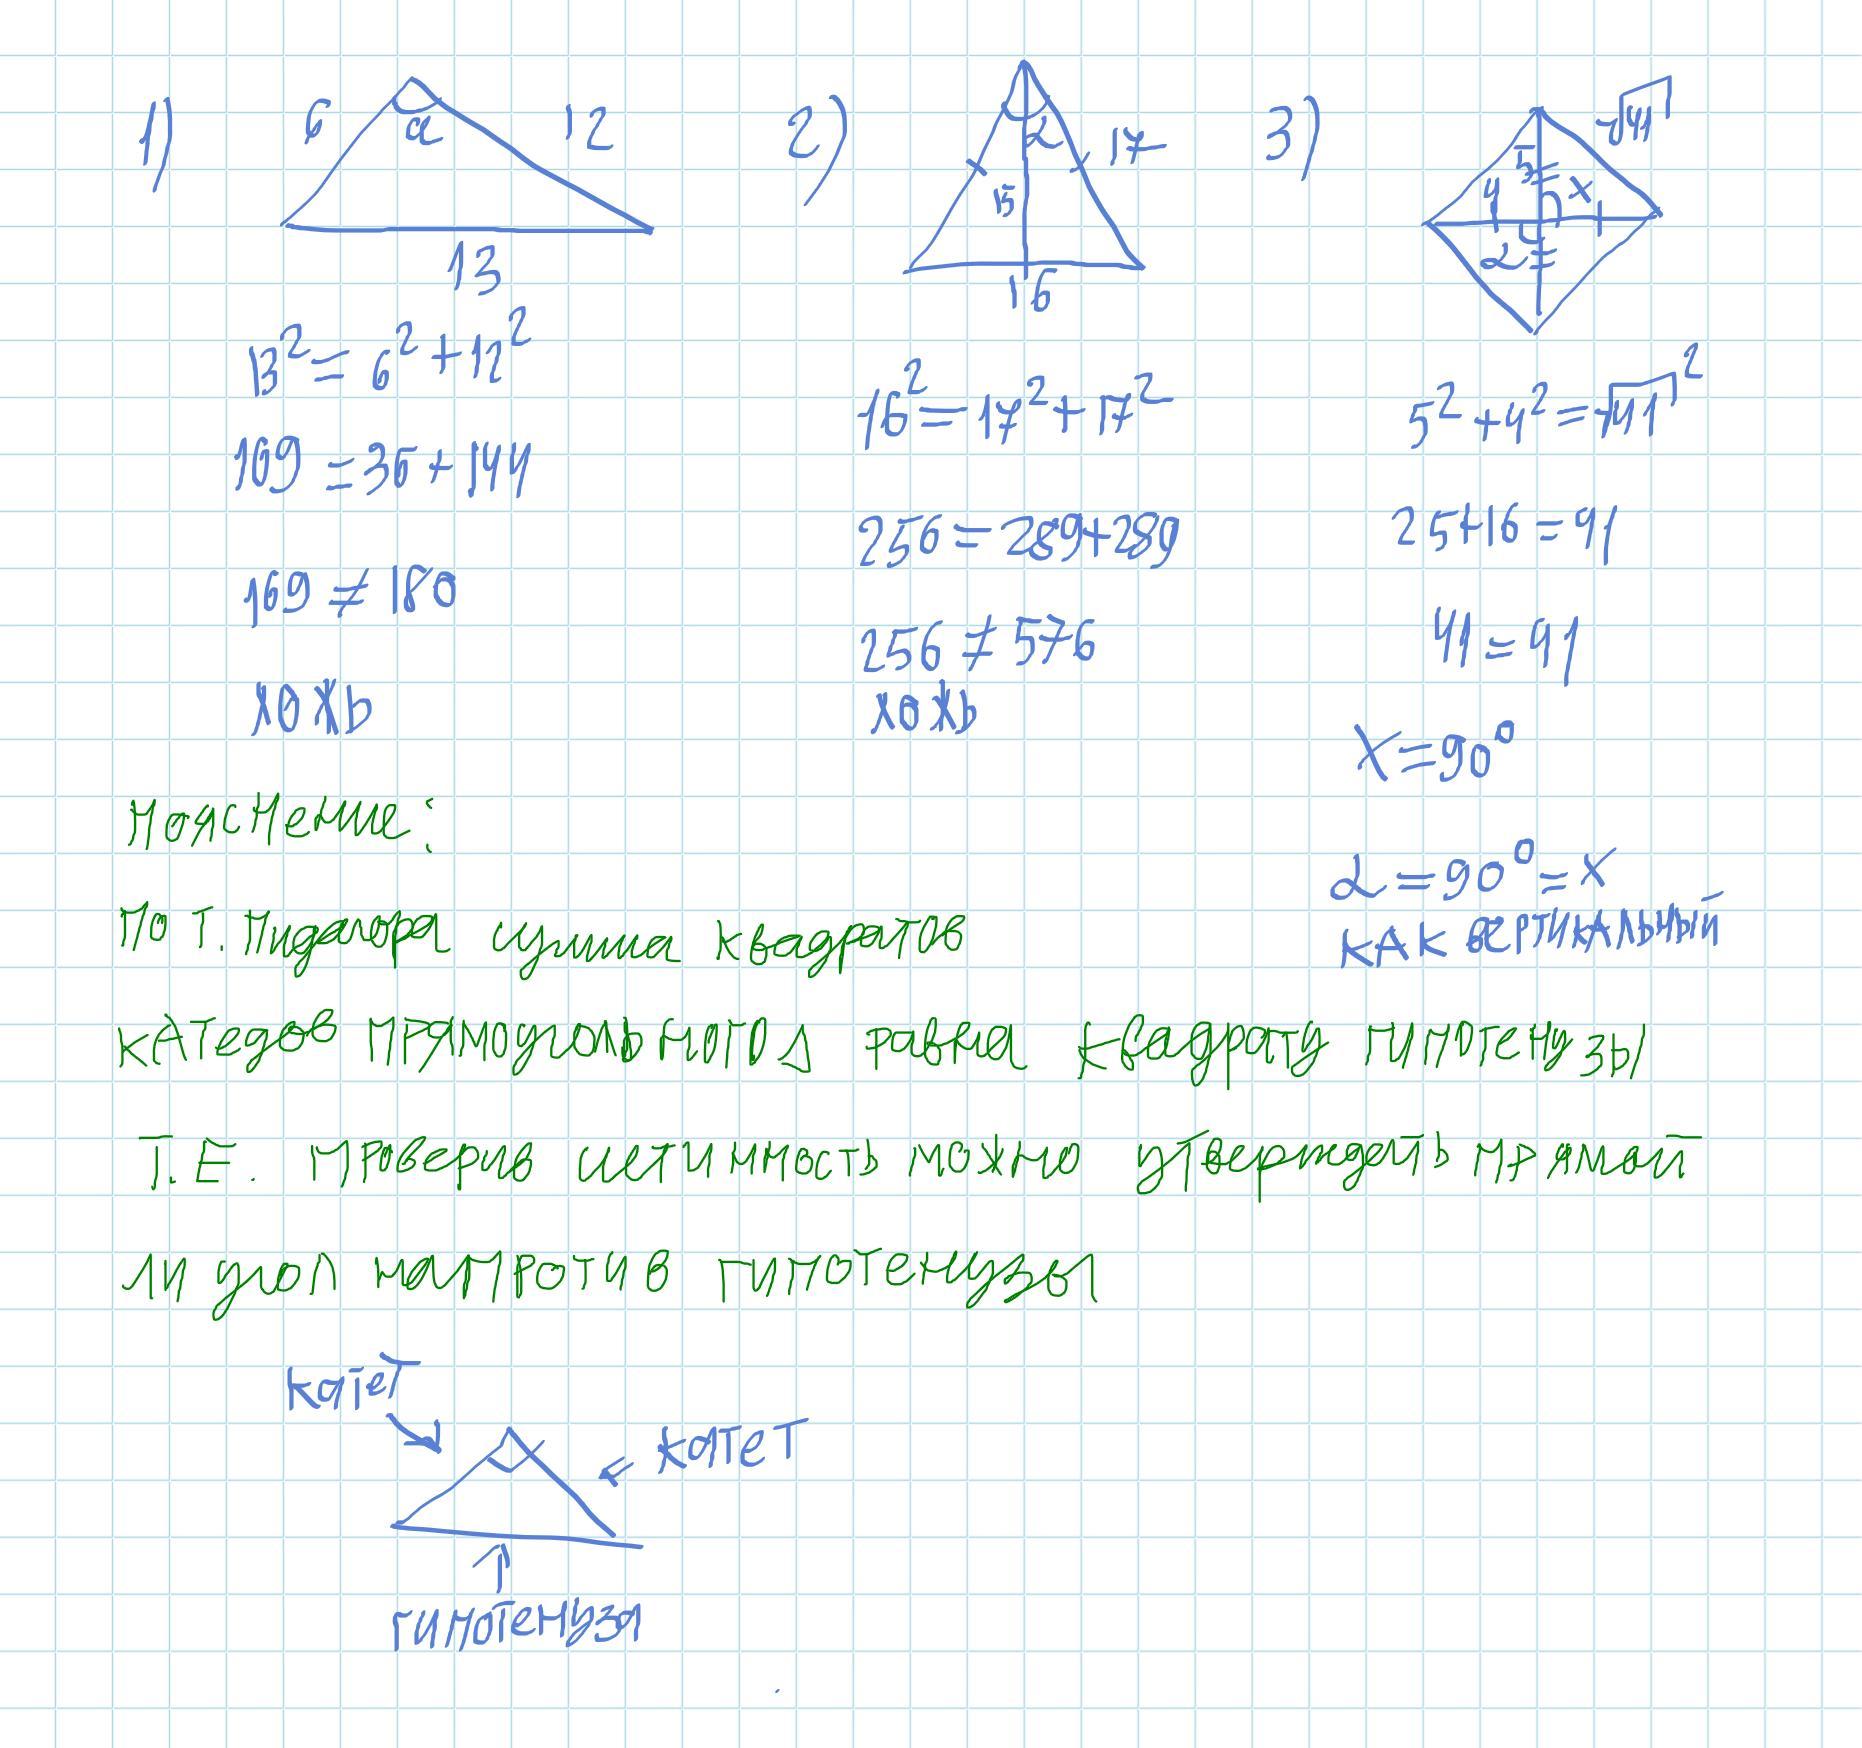 1) 6 α 12
13
13² = 6² + 12²
169 = 36 + 144
169 ≠ 180
ложь
2) α 17
15
16
16² = 17² + 17²
256 = 289 + 289
256 ≠ 576
ложь
3) √41
5
4 x
α
5² + 4² = √41²
25 + 16 = 41
41 = 41
x = 90°
α = 90° = x
как вертикальный
Пояснение:
По т. Пидагора сумма квадратов
катедов прямоугольного Δ равна квадрату гипотенузы
Т.Е. проверив истинность можно утверждать прямой
ли угол напротив гипотенузы
катет
катет
гипотенуза